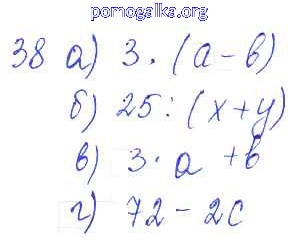 pomogalka.org
38 а) 3 · (а - в)
б) 25 : (х + у)
в) 3 · а + в
г) 72 - 2с